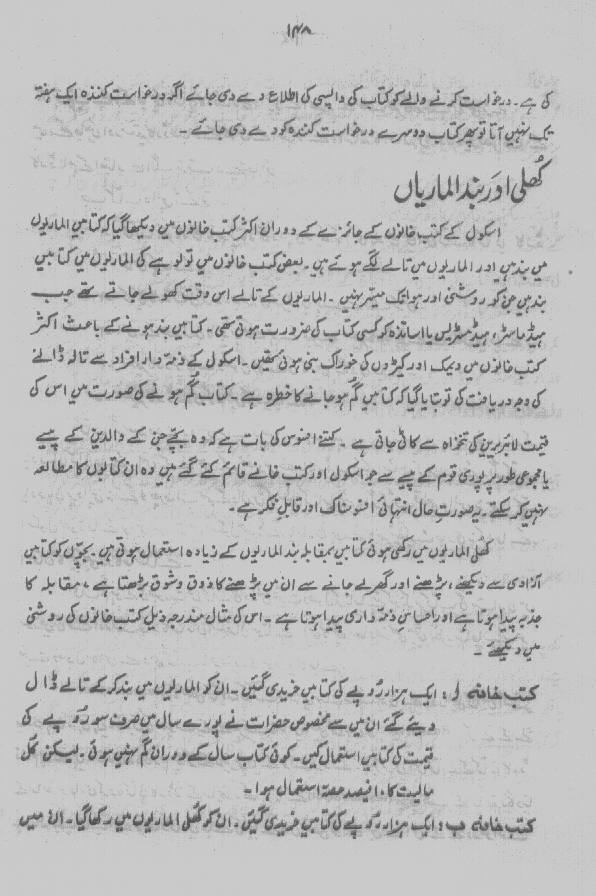 ۱۴۸
کی ہے۔ درخواست کرنے والے کو کتاب کی واپسی کی اطلاع دے دی جائے اگر درخواست کنندہ ایک ہفتہ
تک نہیں آتا تو پھر کتاب دوسرے درخواست کنندہ کو دے دی جائے۔
کُھلی اور بند الماریاں
اسکول کے کتب خانوں کے جائزے کے دوران اکثر کتب خانوں میں دیکھا گیا کہ کتابیں الماریوں
میں بند ہیں اور الماریوں میں تالے لگے ہوئے ہیں۔ بعض کتب خانوں میں تو لوہے کی الماریوں میں کتابیں
بند ہیں جن کو روشنی اور ہوا تک میسّر نہیں۔ الماریوں کے تالے اس وقت کھولے جاتے تھے جب
ہیڈ ماسٹر، ہیڈ مسٹریس یا اساتذہ کو کسی کتاب کی ضرورت ہوتی تھی۔ کتابیں بند ہونے کے باعث اکثر
کتب خانوں میں دیمک اور کیڑوں کی خوراک بنی ہوئی تھیں۔ اسکول کے ذمہ دار افراد سے تالہ ڈالنے
کی وجہ دریافت کی تو بتایا گیا کہ کتابیں گم ہو جانے کا خطرہ ہے۔ کتاب گم ہونے کی صورت میں اس کی
قیمت لائبریرین کی تنخواہ سے کاٹی جاتی ہے۔ کتنے افسوس کی بات ہے کہ وہ بچّے جن کے والدین کے پیسے
یا مجموعی طور پر پوری قوم کے پیسے سے جو اسکول اور کتب خانے قائم کئے گئے ہیں وہ ان کتابوں کا مطالعہ
نہیں کر سکتے۔ یہ صورت حال انتہائی افسوسناک اور قابلِ فکر ہے۔
کُھلی الماریوں میں رکھی ہوئی کتابیں بمقابلہ بند الماریوں کے زیادہ استعمال ہوتی ہیں۔ بچّوں کو کتابیں
آزادی سے دیکھنے، پڑھنے اور گھر لے جانے سے ان میں پڑھنے کا ذوق و شوق بڑھتا ہے، مقابلہ کا
جذبہ پیدا ہوتا ہے اور احساسِ ذمّہ داری پیدا ہوتا ہے۔ اس کی مثال مندرجہ ذیل کتب خانوں کی روشنی
میں دیکھئے۔
کتب خانہ ا: ایک ہزار رُوپے کی کتابیں خریدی گئیں۔ ان کو الماریوں میں بند کر کے تالے ڈال
دیئے گئے ان میں سے مخصوص حضرات نے پورے سال میں صرف سو رُوپے کی
قیمت کی کتابیں استعمال کیں۔ کوئی کتاب سال کے دوران گم نہیں ہوئی۔ لیکن کُل
مالیت کا ۱۰ فیصد حصہ استعمال ہوا۔
کتب خانہ ب: ایک ہزار رُوپے کی کتابیں خریدی گئیں۔ ان کو کُھلی الماریوں میں رکھا گیا۔ ان میں